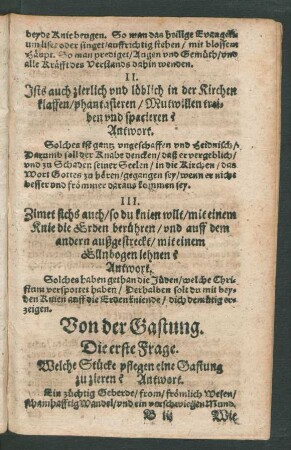 beyde Knie beugen. So man das heilige Evangeli-
um liset oder singet/auffrichtig stehen / mit blossem
Häupt. So man prediget/Augen und Gemüth/und
alle Kräfft des Verstands dahin wenden.
II.
Ists auch zierlich und löblich in der Kirchen
klaffen/phantasieren / Mutwillen trai-
ben und spacieren?
Antwort.
Solches ist gantz ungeschaffen und Heidnisch/
Darumb sall der Knabe dencken/daß er vergeblich/
und zu Schaden seiner Seelen / in die Kirchen/das
Wort Gottes zu hören/gegangen sey/wenn er nicht
besser und frömmer daraus kommen sey.
III.
Zimet sichs auch/so du knien wilt/mit einem
Knie die Erden berühren / und auff dem
andern außgestreckt/mit einem
Ellnbogen lehnen?
Antwort,
Solches haben gethan die Jüden/welche Chri-
stum verspottet haben / Derhalben solt du mit bey-
den Knien auff die Erden kniende / dich demütig er-
zeigen.
Von der Gastung.
Die erste Frage.
Welche Stücke pflegen eine Gastung
zu zieren? Antwort.
Ein züchtig Geberde/from/frömlich Wesen/
schamhafftig Wandel/und ein verschwiegen Mund.
B iij Wie